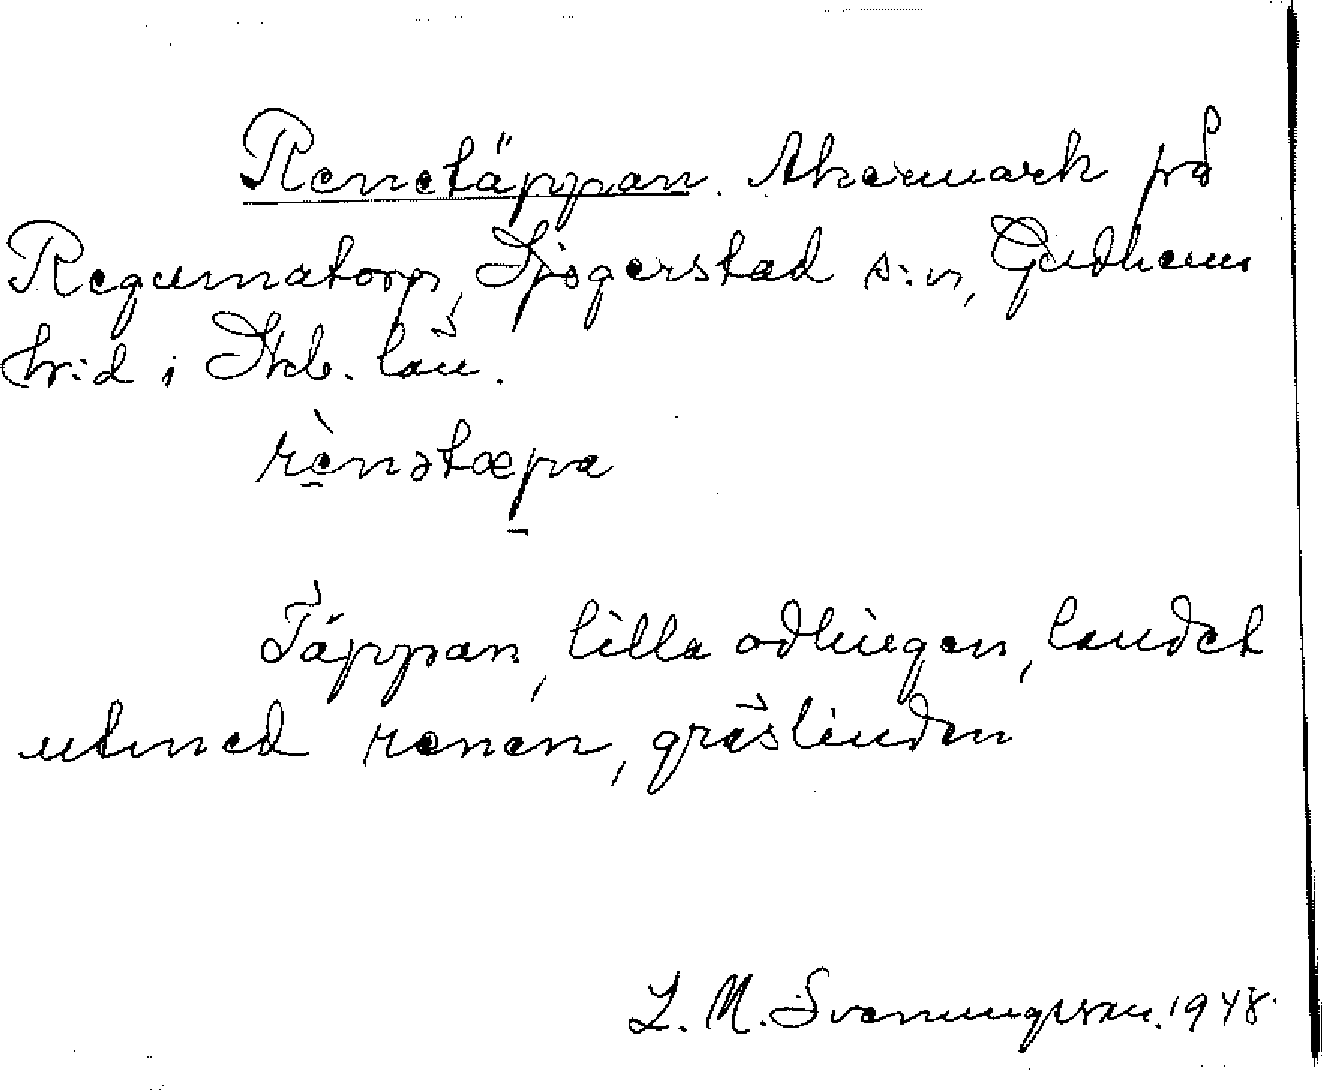 Renetäppan. Åkermark på
Regumatorp, Sjogerstad s:n, Gudhems
hr:d i Skb. län.
rènətæpa
Täppan, lilla odlingen, landet
utmed renen, gräslinden
L. M. Svenungsson. 1948.